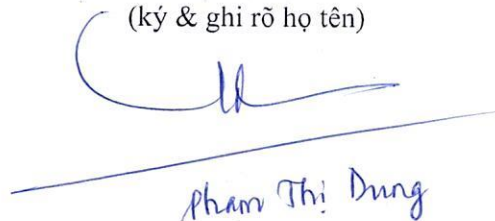 (ký & ghi rõ họ tên)
Phạm Thị Dung